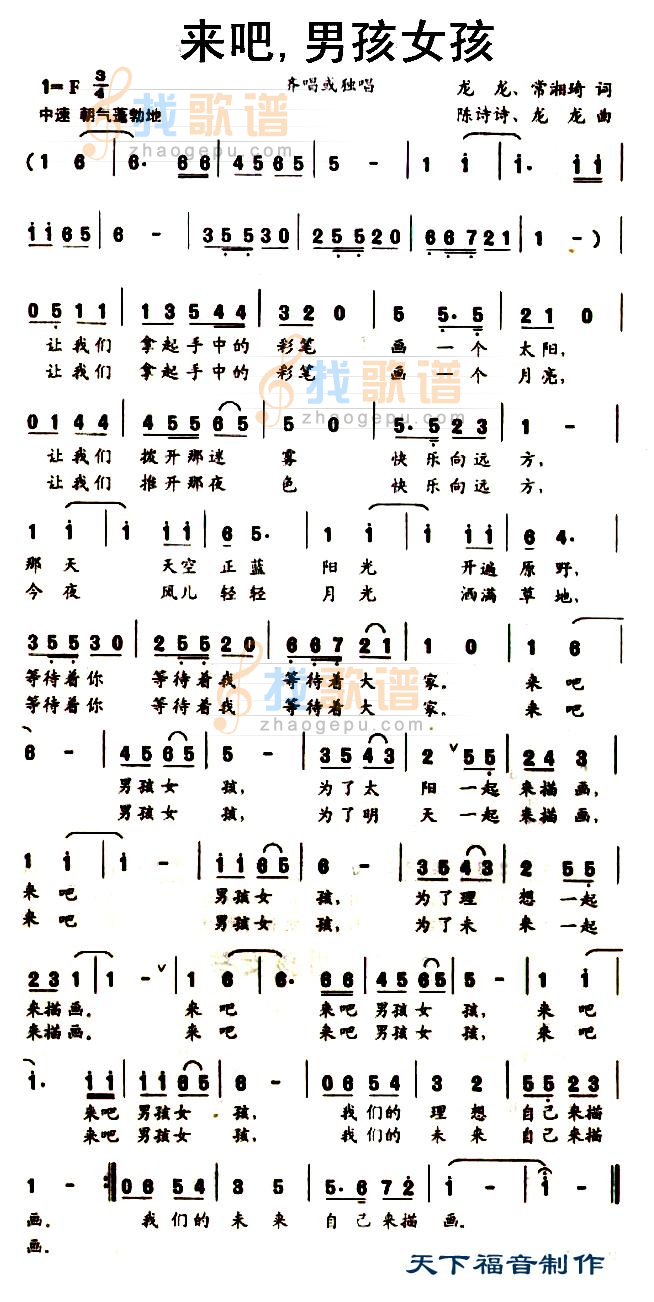 来吧,男孩女孩
1=F 3/4
齐唱或独唱
龙 龙、常湘琦 词
中速 朝气蓬勃地
陈诗诗、龙 龙 曲
找歌谱
zhaogepu.com
( 1 6 | 6· 6 6 | 4 5 6 5 | 5 - | 1 i | i· i i |
i i 6 5 | 6 - | 3 5 5 3 0 | 2 5 5 2 0 | 6 6 7 2 1 | 1 - ) |
0 5 1 1 | 1 3 5 4 4 | 3 2 0 | 5 5· 5 | 2 1 0 |
让我们 拿起手中的 彩笔 画一个 太阳,
让我们 拿起手中的 彩笔 画一个 月亮,
找歌谱
zhaogepu.com
0 1 4 4 | 4 5 5 6 5 | 5 0 | 5· 5 2 3 | 1 - |
让我们 拨开那迷 雾 快乐向远 方,
让我们 推开那夜 色 快乐向远 方,
1 i | i i i | 6 5· | 1 i | i i i | 6 4· |
那天 天空 正蓝 阳光 开遍 原野,
今夜 风儿 轻轻 月光 洒满 草地,
3 5 5 3 0 | 2 5 5 2 0 | 6 6 7 2 1 | 1 0 | 1 6 |
等待着你 等待着我 等待着大 家。 来吧
等待着你 等待着我 等待着大 家。 来吧
找歌谱
zhaogepu.com
6 - | 4 5 6 5 | 5 - | 3 5 4 3 | 2 ∨ 5 5 | 2 4 3 |
男孩女 孩, 为了太 阳 一起 来描画,
男孩女 孩, 为了明 天 一起 来描画,
1 i | i - | i i 6 5 | 6 - | 3 5 4 3 | 2 5 5 |
来吧 男孩女 孩, 为了理 想 一起
来吧 男孩女 孩, 为了未 来 一起
2 3 1 | 1 - ∨ | 1 6 | 6· 6 6 | 4 5 6 5 | 5 - | 1 i |
来描画。 来吧 来吧 男孩女 孩, 来吧
来描画。 来吧 来吧 男孩女 孩, 来吧
i· i i | i i 6 5 | 6 - | 0 6 5 4 | 3 2 | 5 5 2 3 |
来吧 男孩女 孩, 我们的 理想 自己来描
来吧 男孩女 孩, 我们的 未来 自己来描
1 - :| 0 6 5 4 | 3 5 | 5· 6 7 2 | i - | i - |
画。 我们的 未来 自己来描 画。
画。
天下福音制作